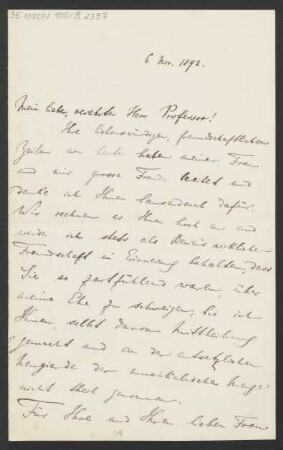 55 Nachl 100/B, 2337
6 Nov. 1892.
Mein lieber, verehrter Herr Professor!
Ihre liebenswürdigen, freundschaftlichen
Zeilen von heute haben meiner Frau
und mir grosse Freude bereitet und
danke ich Ihnen tausendmal dafür.
Wir rechnen es Ihnen hoch an und
werde ich stets als Beweis wirklicher
Freundschaft in Erinnerung behalten, dass
Sie so zartfühlend waren über
meine Ehe zu schweigen, bis ich
Ihnen selbst davon Mittheilung
gemacht und an der entsetzlichen
Neugierde der musikalischen Menge
nicht theil genommen.
Für Ihre und Ihrer lieben Frau